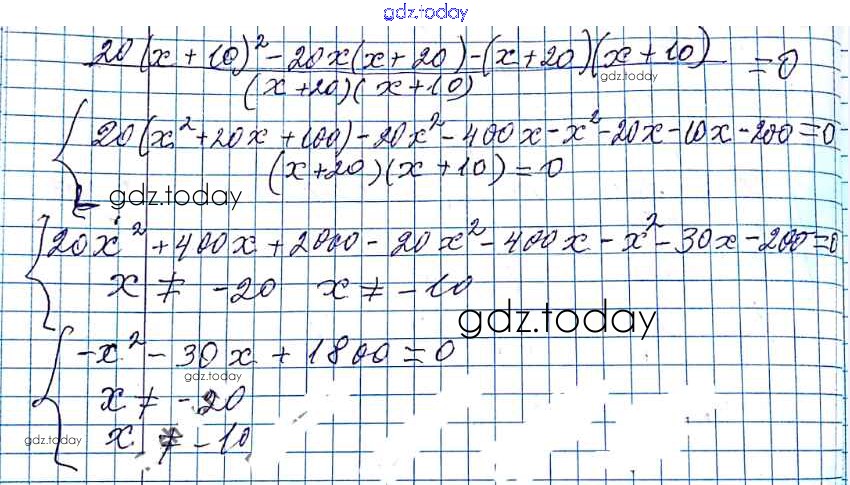 gdz.today
20(x + 10)² - 20x(x + 20) - (x + 20)(x + 10)
gdz.today
(x + 20)(x + 10)
= 0
20(x² + 20x + 100) - 20x² - 400x - x² - 20x - 10x - 200 = 0
(x + 20)(x + 10) = 0
gdz.today
20x² + 400x + 2000 - 20x² - 400x - x² - 30x - 200 = 0
x ≠ -20 x ≠ -10
gdz.today
-x² - 30x + 1800 = 0
gdz.today
x ≠ -20
gdz.today
x ≠ -10